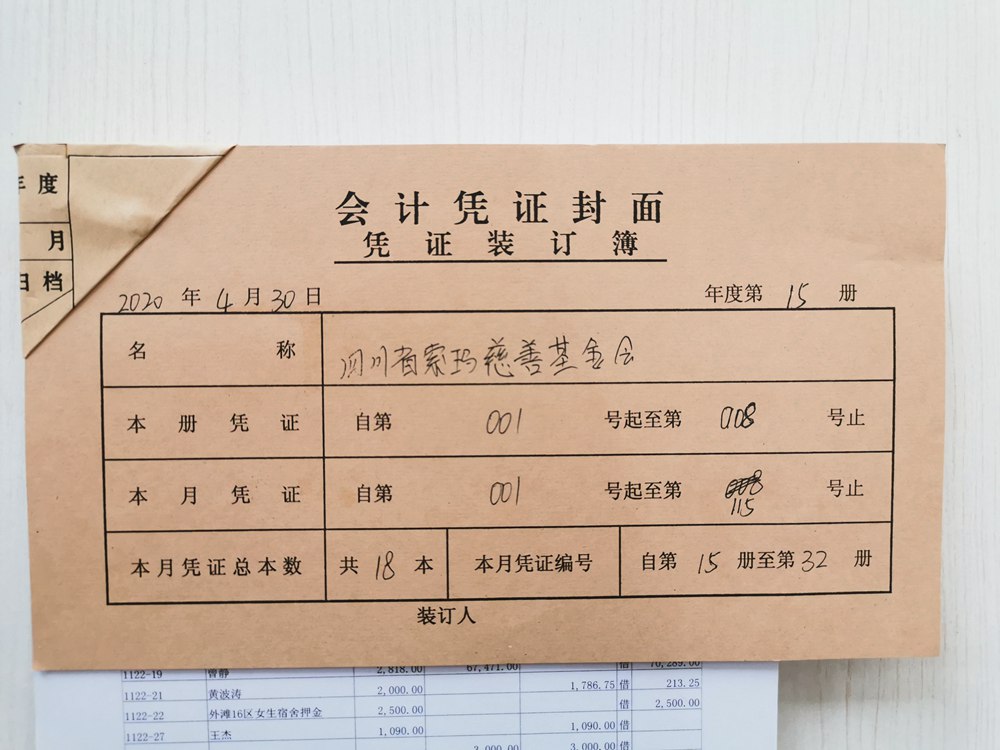 年度
月
归档
会计凭证封面
凭证装订簿
2020 年 4 月 30 日 年度第 15 册
名 称 四川省索玛慈善基金会
本册凭证 自第 001 号起至第 008 号止
本月凭证 自第 001 号起至第 115 号止
本月凭证总本数 共 18 本 本月凭证编号 自第 15 册至第 32 册
装订人
1122-19 曾静 2,818.00 67,471.00 借 70,289.00
1122-21 黄波涛 2,000.00 1,786.75 借 213.25
1122-22 外滩16区女生宿舍押金 2,500.00 借 2,500.00
1122-27 王杰 1,090.00 1,090.00 借
3,000.00 3,000.00 借